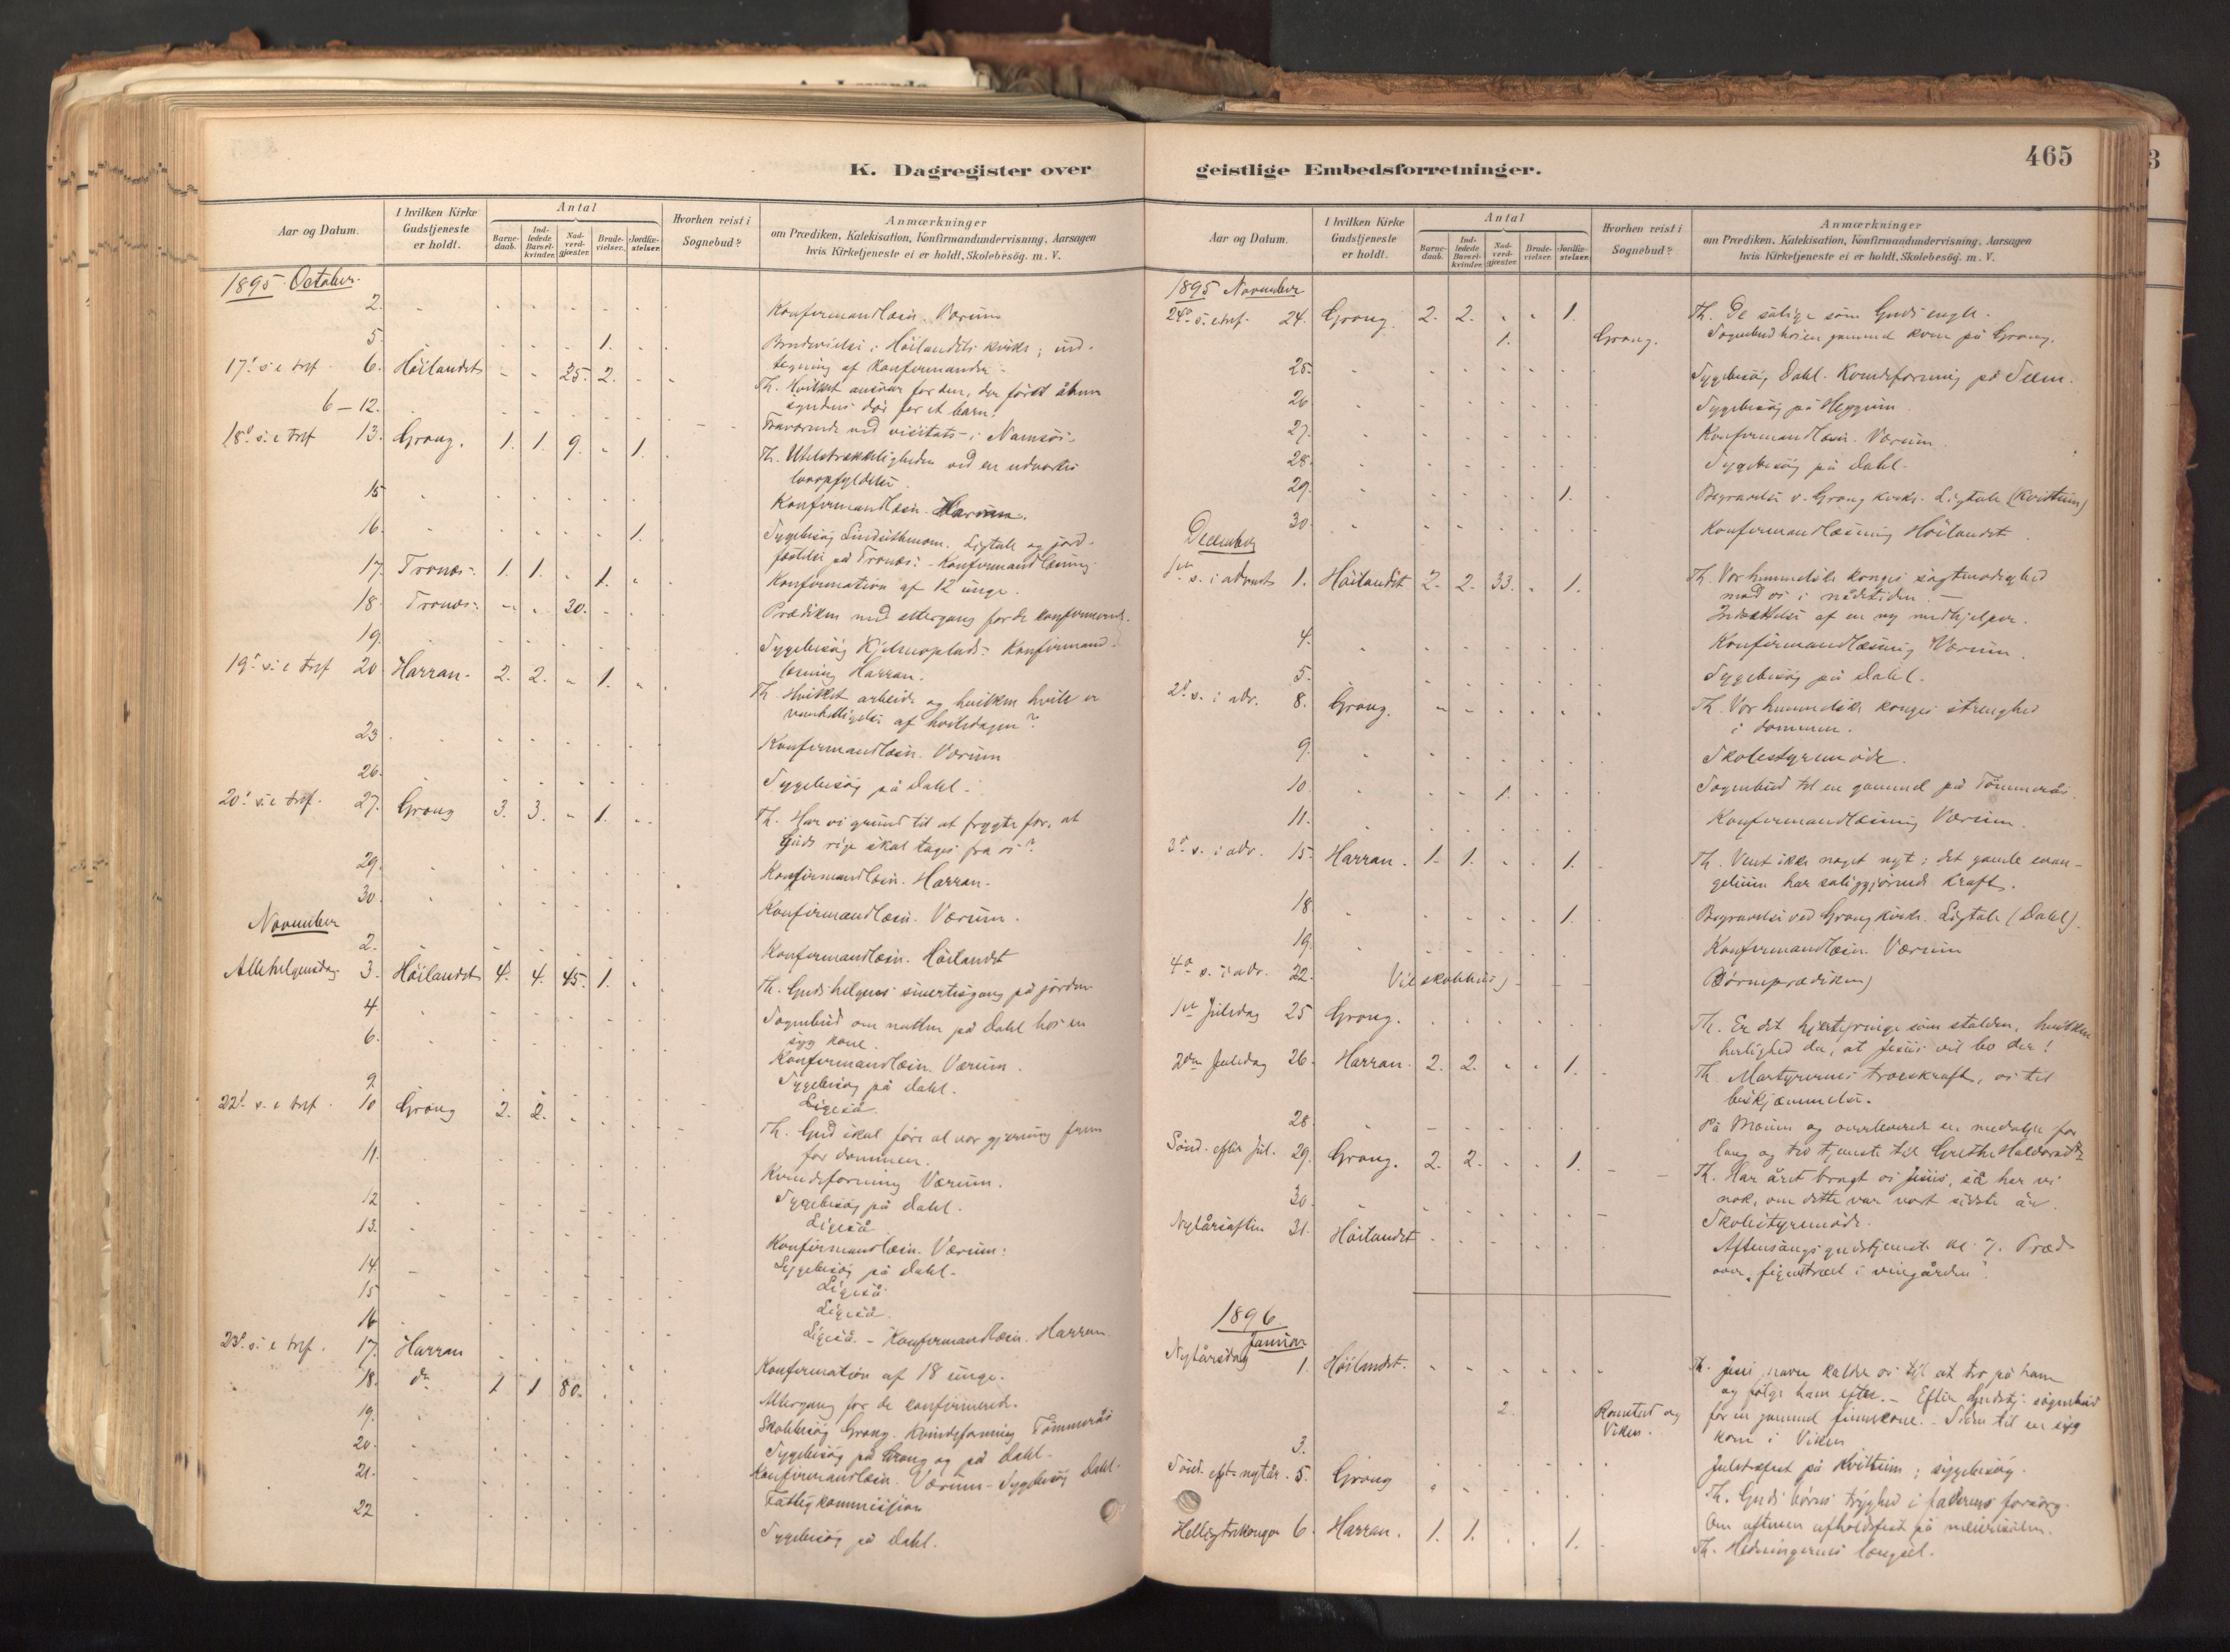 K. Dagregister over
Aar og Datum.
I hvilken Kirke Gudstjeneste er holdt.
Antal
Barne-daab.
Ind-ledede Barsel-kvinder.
Nad-verd-gjæster.
Brude-vielser.
Jordfæ-stelser.
Hvorhen reist i Sognebud?
Anmærkninger
om Prædiken, Katekisation, Konfirmandundervisning, Aarsagen
hvis Kirketjeneste ei er holdt, Skolebesög. m. V.
1895 October.
2. Konfirmandlæsn. Værum
5. 1. Brudevielse i Höilandets kirke; ind-
tegning af Konfirmander
17. s. e. tref. 6. Höilandet - - 25. 2. Th. Hvilket ansvar for den, der först åbner
syndens dör for et barn!
6-12. Fraværende ved visitats i Namsös.
18. s. e. tref 13. Grong. 1. 1. 9. 1. Th. Utilstrækkeligheden ved en udvortes
lovopfyldelse
15 Konfirmandlæsn. Harran.
16. 1. Sygebesög Ligtale og jord-
fæstelse på Tronæs. - Konfirmandlæsning.
17. Tronæs. 1. 1. 1. Konfirmation af 12 unge.
18. Tronæs. 20. Prædiken med altergang for de konfirmerede.
19. Sygebesög Konfirmand-
læsning Harran.
19. s. e. tref 20 Harran. 2. 2. 1. Th. Hvilket arbeide og hvilken hvile er
vanhelligelse af hviledagen?
23 Konfirmandlæsn. Værum
26. Sygebesög på Dahl.
20. s. e. tref. 27. Grong 3. 3. 1. Th. Har vi grund til at frygte for, at
Guds rige skal tages fra os?
29. Konfirmandlæsn. Harran.
30. Konfirmandlæsn. Værum.
November
2. Konfirmandlæsn. Höilandet
Allehelgensdag 3. Höilandet 4. 4. 45. 1. Th. Guds helgenes på jorden
4. Sognebud om natten på Dahl hos en
syg kone.
6. Konfirmandlæsn. Værum.
9 Sygebesög på Dahl.
Ligeså.
22. s. e. tref. 10 Grong 2. 2. Th. Gud skal före al vor gjerning frem
for dommen.
11. Kvindeforening Værum.
12 Sygebesög på Dahl.
13. Ligeså
Konfirmandlæsn. Værum.
14. Sygebesög på Dahl.
15 Ligeså
16 Ligeså.
Ligeså. - Konfirmandlæsn. Harran.
23. s. e. tref. 17. Harran Konfirmation af 18 unge.
18. do 1 1 80. Altergang for de confirmerede.
19. Skolebesög Grong. Kvindeforening Tömmerås
20. Sygebesög på Grong og på Dahl.
21. Konfirmandlæsn. Værum - Sygebesög Dahl.
22 Fattigkommission
Sygebesög på Dahl.
465
geistlige Embedsforretninger.
Aar og Datum.
I hvilken Kirke Gudstjeneste er holdt.
Antal
Barne-daab.
Ind-ledede Barsel-kvinder.
Nad-verd-gjæster.
Brude-vielser.
Jordfæ-stelser.
Hvorhen reist i Sognebud?
Anmærkninger
om Prædiken, Katekisation, Konfirmandundervisning, Aarsagen
hvis Kirketjeneste ei er holdt, Skolebesög. m. V.
1895 November
24. s. e. tref. 24. Grong. 2. 2. 1. Th. De salige som Guds engle.
1. Grong. Sognebud hos en gammel kone på Grong.
25. Sygebesög Dahl. Kvindeforening på Seem.
26 Sygebesög på Heggum
27. Konfirmandlæsn. Værum.
28. Sygebesög på Dahl.
29. 1. Begravelse v. Grong kirke. Ligtale (Kvittum)
30. Konfirmandlæsning Höilandet.
December
1ste s. i advent 1. Höilandet 2. 2. 33. 1. Th. Vor himmelske konges sagtmodighed
mod os i nådetiden. -
Indsættelse af en ny medhjelper.
4. Konfirmandlæsning Værum.
5. Sygebesög på Dahl.
2. s. i adv. 8. Grong. Th. Vor himmelske konges strenghed
i dommen.
9. Skolestyremöde.
10 1. Sognebud til en gammel på Tömmerås.
11. Konfirmandlæsning Værum.
3. s. i adv. 15. Harran. 1. 1. 1. Th. Vent ikke noget nyt; det gamle evan-
gelium har saliggjörende kraft.
18. 1. Begravelse ved Grong kirke. Ligtale (Dahl).
19. Konfirmandlæsn. Værum
4. s. i adv. 22. Vie skolehus) (Börneprædiken)
1ste Juledag 25 Grong. Th. Er det hjertesringe som stalden, hvilken
herlighed da, at Jesus vil bo der!
2den Juledag 26. Harran. 2. 2. 1. Th. Martyrernes troeskraft, os til
beskjæmmelse.
28. På Moum og overleverede en medalje for
lang og tro tjeneste til Grethe
Sönd. efter Jul. 29. Grong. 2. 2. 1. Th. Har året bragt os Jesus, så har vi
nok, om dette var vort sidste år.
30. Skolestyremöde.
Nytårsaften 31. Höilandet Aftensangsgudstjeneste kl 7. Præd
over "figentræet i vingården".
1896.
Januar
Nytårsdag 1. Höilandet. Th. Jesu navn kalder os til at tro på ham
og fölge ham efter. - Efter Gudstj. sognebud
2. Romstad og Viken. for en gammel finnekone. - Siden til en syg
kone i Viken
3. Juletræfest på Kvittum; sygebesög.
Sönd. eft. nytår. 5. Grong Th. Guds börns tryghed i faderens forsorg.
Om aftenen afholdsfest på meierisalen.
Helligtrekonger 6. Harran. 1. 1. 1. Th. Hedningernes længsel.